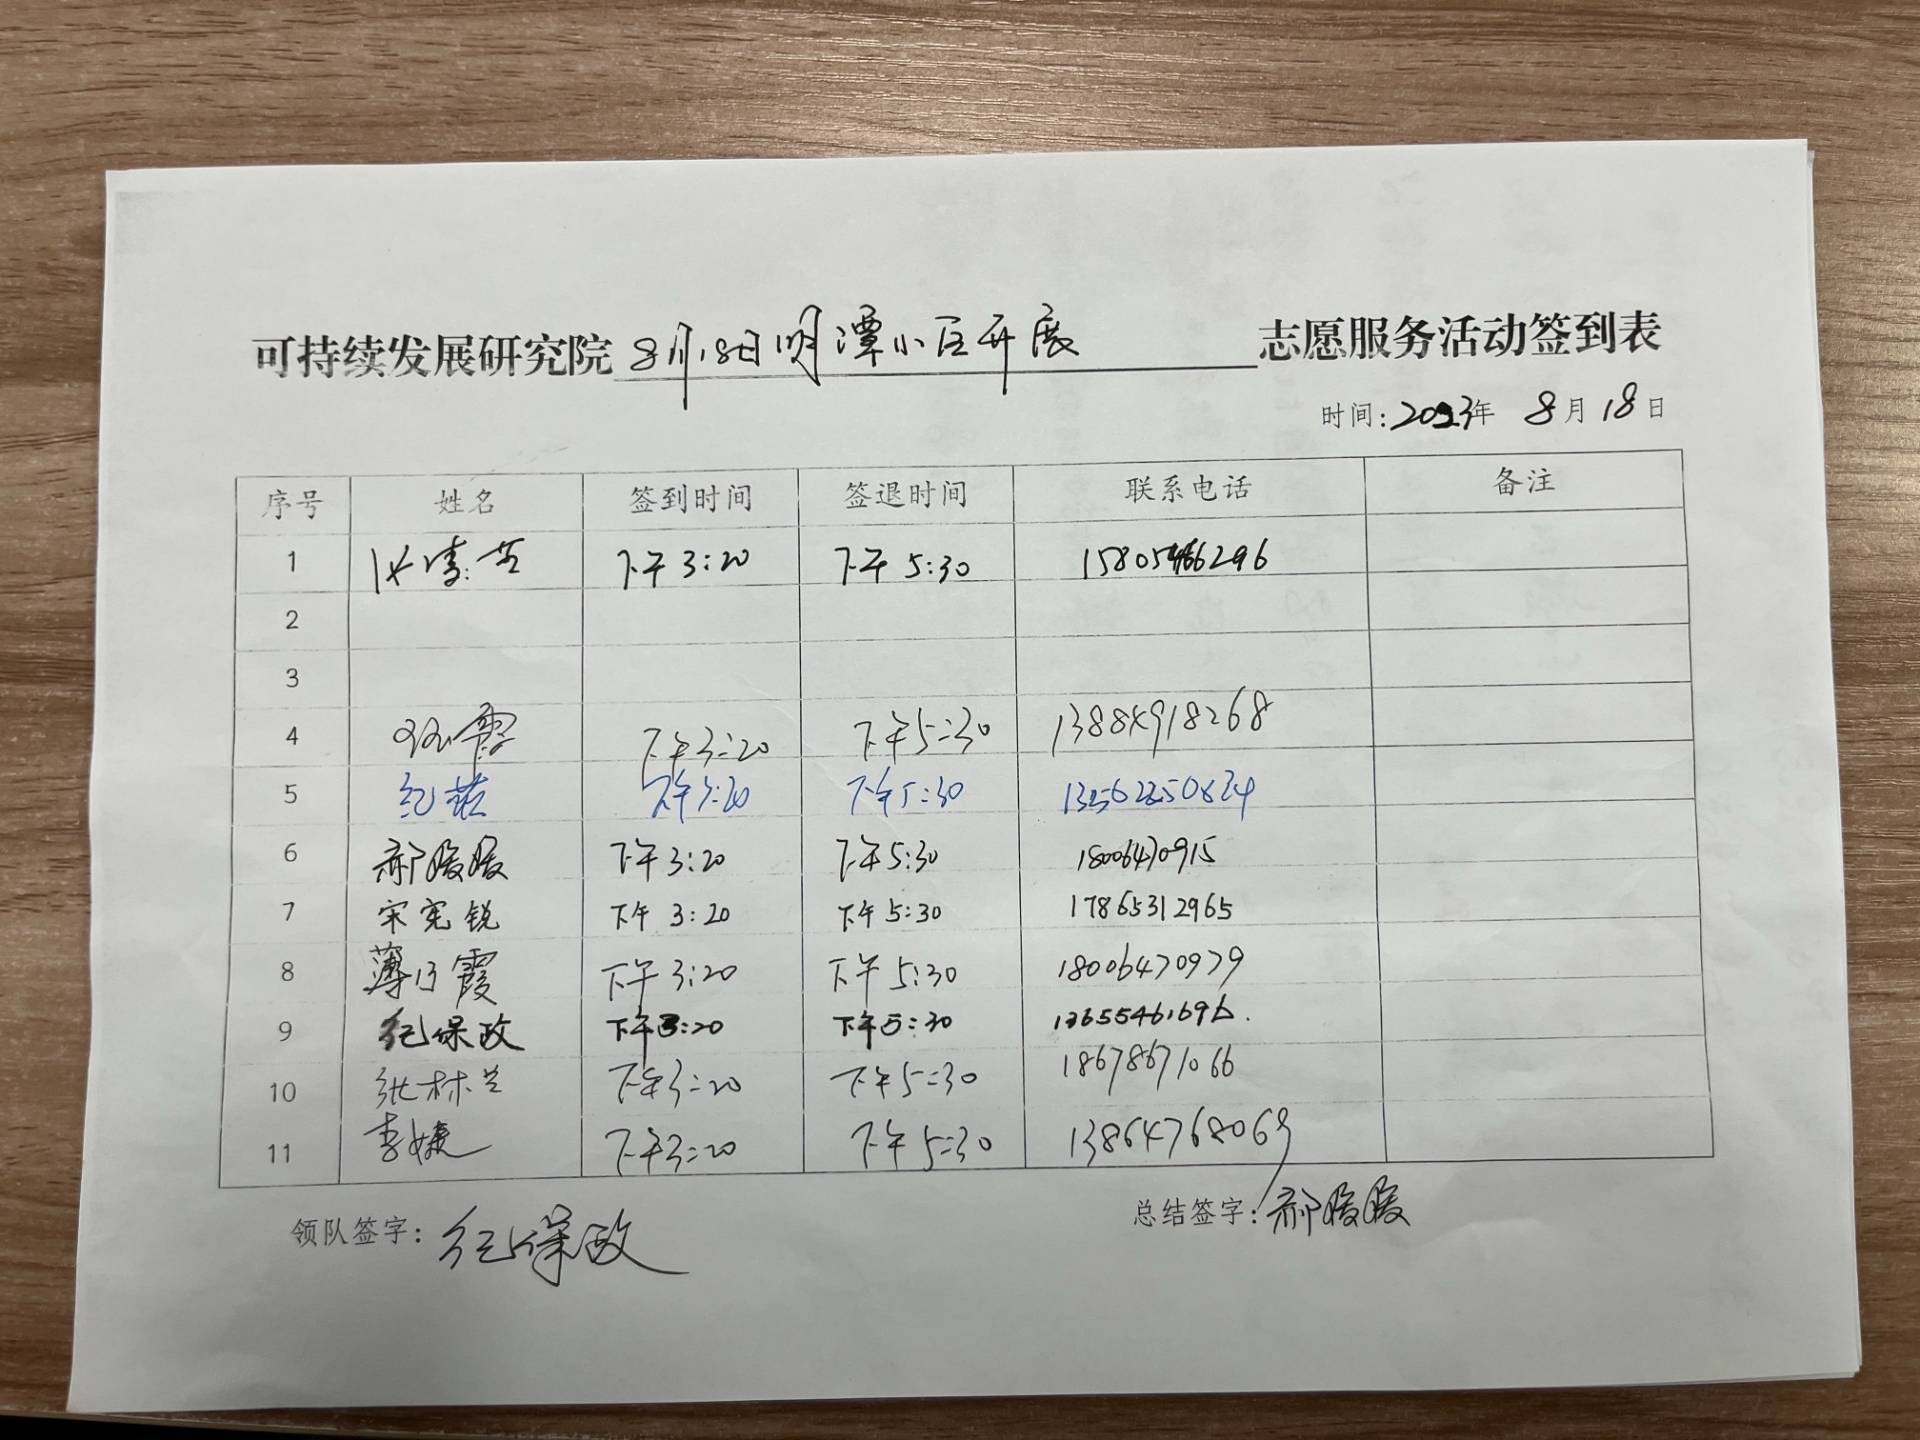 可持续发展研究院8月18日明潭小区开展志愿服务活动签到表
时间:2023年 8月18日
序号 姓名 签到时间 签退时间 联系电话 备注
1 下午3:20 下午5:30
2
3
4 下午3:20 下午5:30 13884918268
5 纪 下午3:20 下午5:30
6 郝媛媛 下午3:20 下午5:30 18006470915
7 宋宪锐 下午3:20 下午5:30 17865312965
8 薄乃霞 下午3:20 下午5:30 18006470979
9 纪保政 下午3:20 下午5:30 13655461696
10 张林兰 下午3:20 下午5:30 18678671066
11 李婕 下午3:20 下午5:30 13864768069
领队签字:纪保政 总结签字:郝媛媛